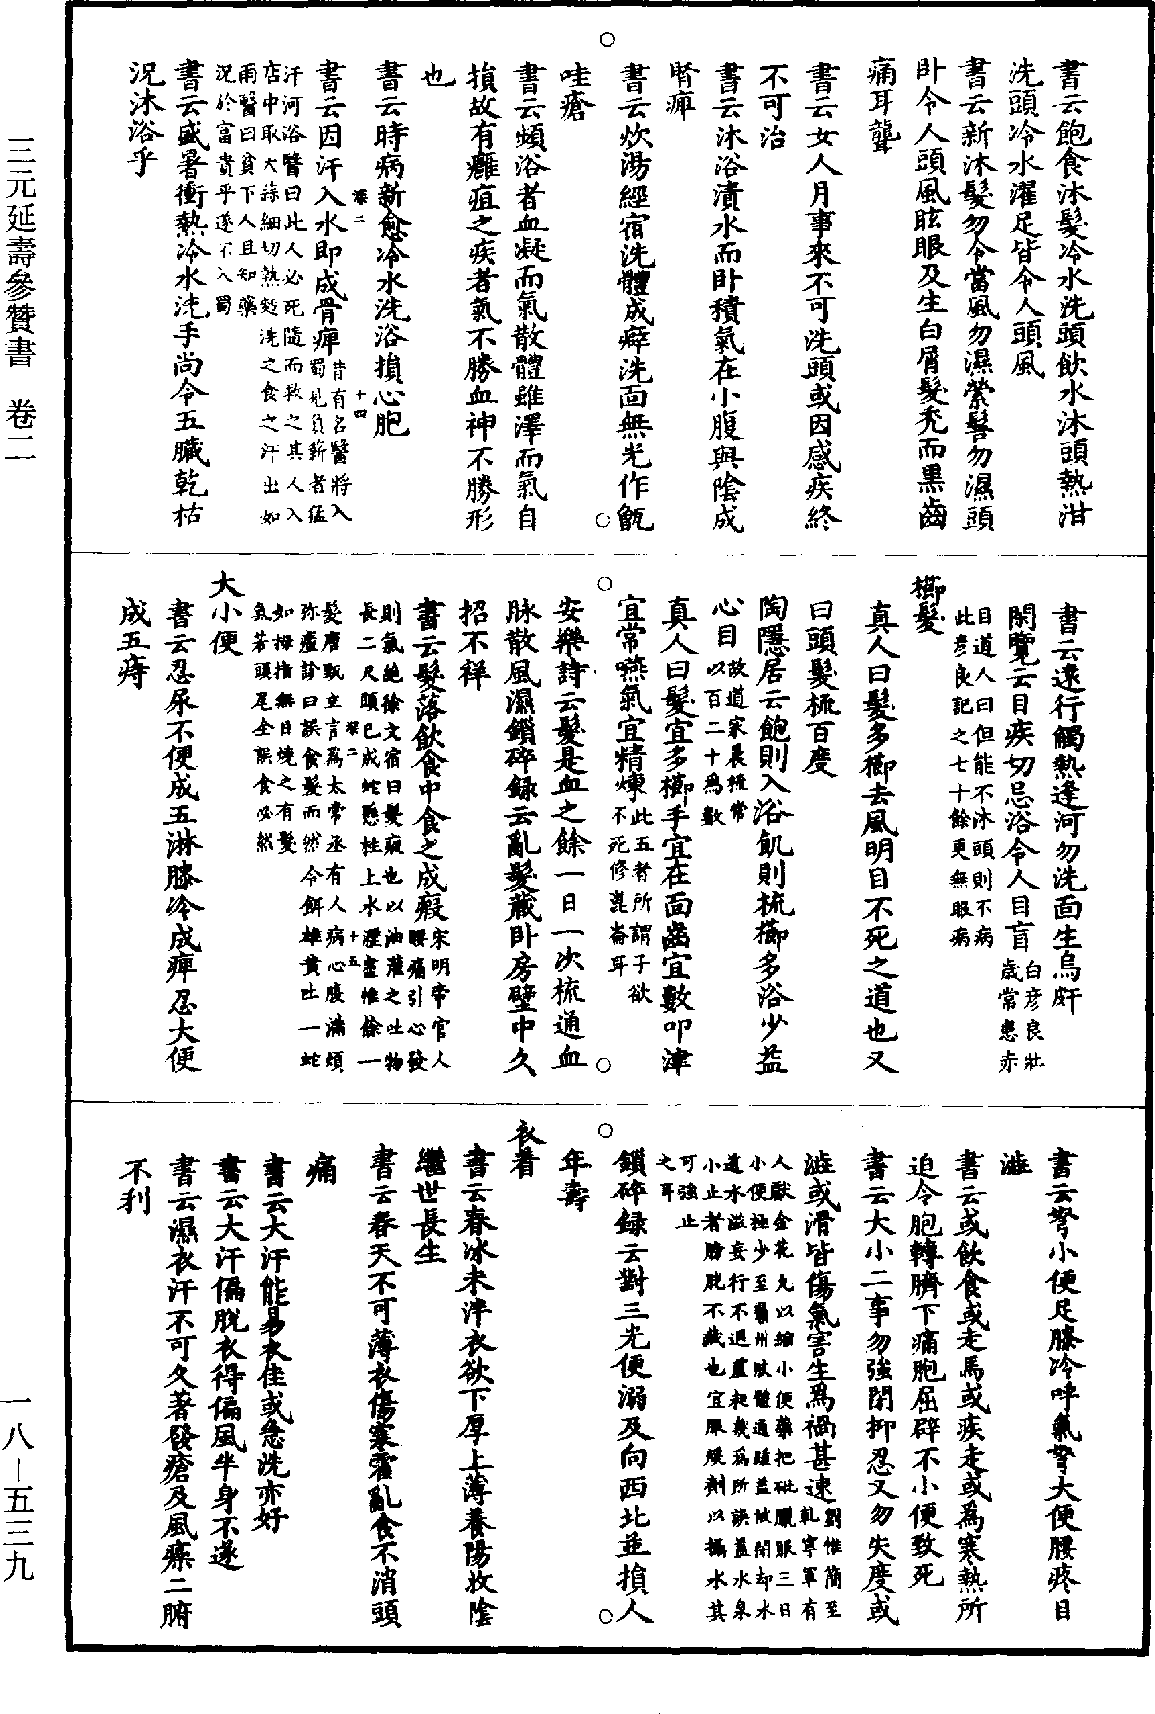 三元延壽參贊書　卷二
書云飽食沐髮冷水洗頭飲水沐頭熱泔
洗頭冷水濯足皆令人頭風
書云新沐髮勿令當風勿濕縈髻勿濕頭
卧令人頭風眩眼及生白屑髮禿而黑齒
痛耳聾
書云女人月事來不可洗頭或因感疾終
不可治
書云沐浴漬水而卧積氣在小腹與陰成
腎痺
書云炊湯經宿洗體成癬洗面無光作甑
哇瘡
書云頻浴者血凝而氣散體雖澤而氣自
損故有癰疽之疾者氣不勝血神不勝形
也
書云時病新愈冷水洗浴損心胞
卷二　十四
書云因汗入水即成骨痺昔有名醫將入
蜀見負薪者猛
汗河浴醫曰此人必死隨而救之其人入
店中取大蒜細切熱麪洗之食之汗出如
雨醫曰貧下人且知藥
況於富貴乎遂不入蜀
書云盛暑衝熱冷水洗手尚令五臟乾枯
況沐浴乎
書云遠行觸熱逢河勿洗面生烏䵟
閑覽云目疾切忌浴令人目盲白彥良壯
歲常患赤
目道人曰但能不沐頭則不病
此彥良記之七十餘更無眼病
櫛髮
真人曰髮多櫛去風明目不死之道也又
曰頭髮梳百度
陶隱居云飽則入浴飢則梳櫛多浴少益
心目故道家晨梳常
以百二十為數
真人曰髮宜多櫛手宜在面齒宜數叩津
宜常嚥氣宜精煉此五者所謂子欲
不死修崑崙耳
安樂詩云髮是血之餘一日一次梳通血
脉散風濕鎖碎錄云亂髮藏卧房壁中久
招不祥
書云髮落飲食中食之成瘕宋明帝官人
腰痛引心發
則氣絕徐文宿曰髮瘕也以油灌之吐物
長二尺頭已成蛇懸柱上水瀝盡惟餘一
卷二　十五
髮唐甄立言為太常丞有人病心腹滿煩
弥瘟診曰誤食髮而然令餌雄黃吐一蛇
如拇指無目燒之有髮
氣若頭尾全誤食必然
大小便
書云忍尿不便成五淋膝冷成痺忍大便
成五痔
書云弩小便足膝冷呼氣弩大便腰疼目
澁
書云或飲食或走馬或疾走或為寒熱所
迫令胞轉臍下痛胞屈辟不小便致死
書云大小二事勿強閉抑忍又勿失度或
澁或滑皆傷氣害生為禍甚速劉惟簡至
乾寧軍有
人獻金花丸以縮小便藥把砒臘服三日
小便極少至霸州肢體通踵蓋被閉却水
道水溢妄行不遇盧祀幾為所誤蓋水泉
小止者膀胱不藏也宜服煖劑以攝水其
可強止
之耳
鎖碎録云對三光便溺及向西北並損人
年壽
衣着
書云春冰未泮衣欲下厚上薄養陽收陰
繼世長生
書云春天不可薄衣傷寒霍亂食不消頭
痛
書云大汗能易衣佳或急洗亦好
書云大汗偏脫衣得偏風半身不遂
書云濕衣汗不可久著發瘡及風瘙二腑
不利
一八－五三九